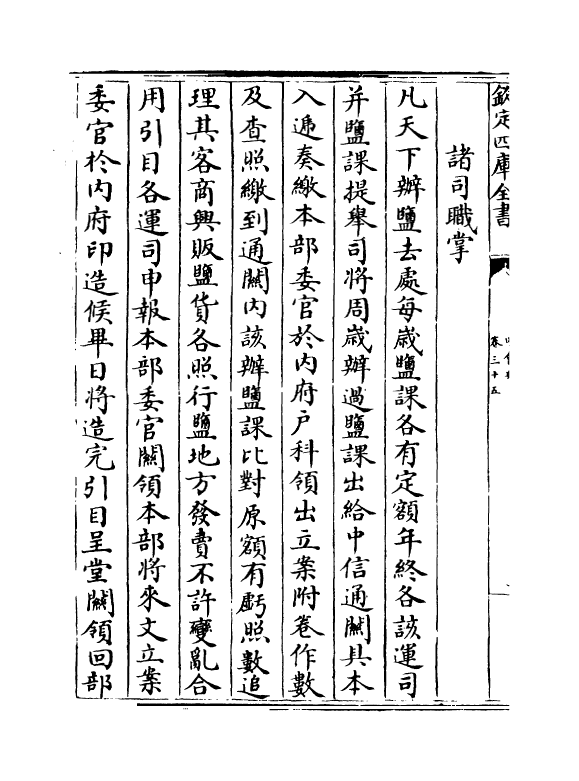 欽定四庫全書
卷三十五
諸司職掌
凡天下辦鹽去處每歲鹽課各有定額年終各該運司
并鹽課提舉司將周歲辦過鹽課出給印信通關具本
入遞奏繳本部委官於內府戶科領出立案附卷作數
及查照繳到通關內該辦鹽課比對原額有虧照數追
理其客商興販鹽貨各照行鹽地方發賣不許變亂合
用引目各運司申報本部委官關領本部將來文立案
委官於內府印造候畢日將造完引目呈堂關領回部